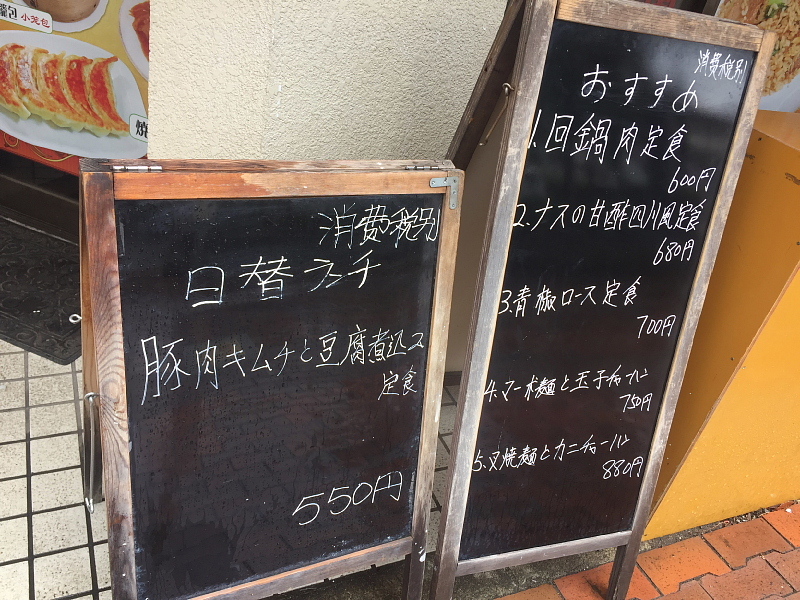 小籠包
焼
消費税別
日替ランチ
豚肉キムチと豆腐煮込ミ
定食
550円
消費税別
おすすめ
1.回鍋肉定食
600円
2.ナスの甘酢四川風定食
680円
3.青椒ロース定食
700円
4.マーボ麺と玉子チャーハン
750円
5.叉焼麺とカニチャーハン
880円